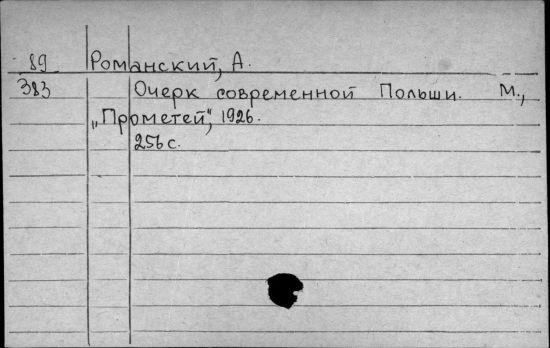 89 Романский, А.
383 Очерк современной Польши. М.,
„Прометей", 1926.
256 с.